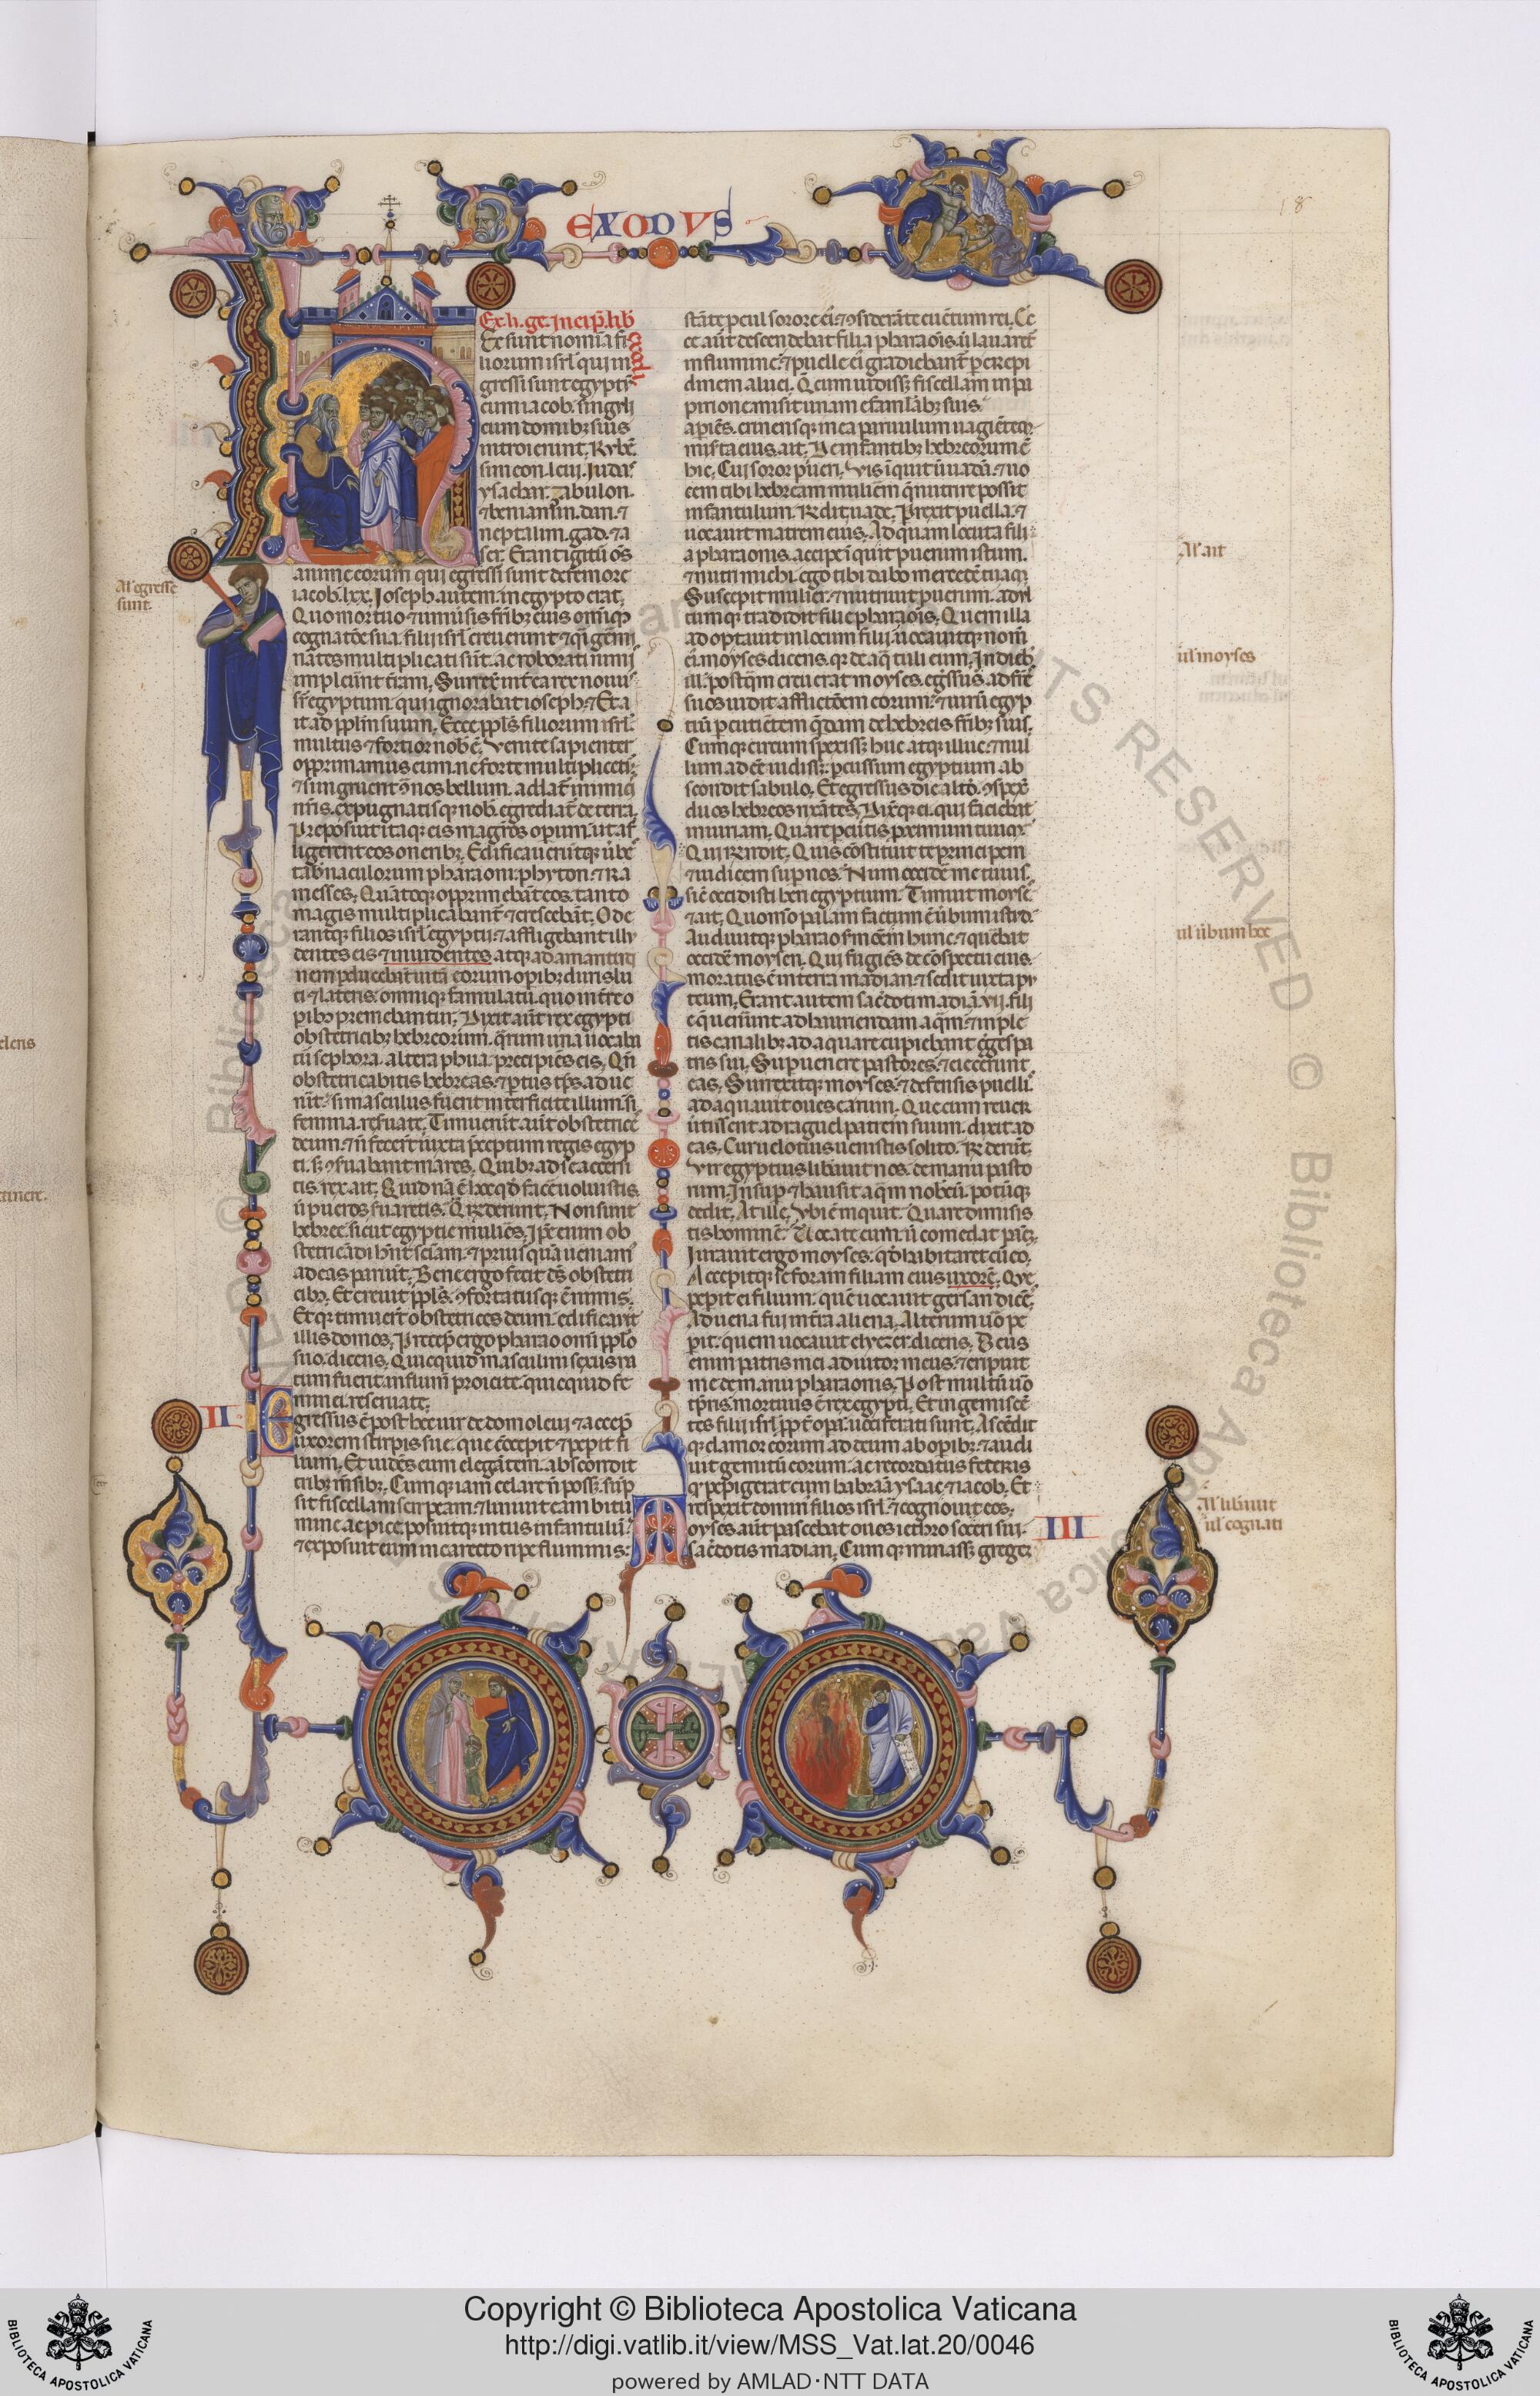 EXODVS
18
Exp.h.ge.Incip̄.lib̄
exodi
Hec sunt nomina fi
liorum isrl̄ qui in
gressi sunt egyptū
cum iacob. singuli
cum domibꝫ suis
introierunt. Rubē.
simeon. leui. Iuda.
ysachar. zabulon.
⁊ beniamin. dan. ⁊
neptalim. gad. ⁊ a
ser. Erant igitur om̄s
anime eorum qui egressi sunt de femore
iacob. lxx. Ioseph autem in egypto erat.
Quo mortuo ⁊ uniuersis frībꝫ eius omīqꝫ
cognatōe sua. filii isrl̄ creuerunt ⁊ q̄ȷ germi
nātes multiplicati sūt. ac roborati nimi
impleuīt terram. Surrex̄ īterea rex nouus
sr̄ egyptum. qui ignorabat ioseph. ⁊ a
it ad ppl̄m suum. Ecce ppl̄s filiorum isrl̄
multus ⁊ fortior nob̄ ē. Venite sapienter
opprimamus eum. ne forte multiplicet̄.
⁊ si ingruerit ꝯ nos bellum. addat̄ inimicis
nr̄is. expugnatisqꝫ nob̄ egrediat̄ de terra.
Preposuit itaqꝫ eis magr̄os operum. ut af
fligerent eos oneribꝫ. Edificaueruntqꝫ urbes
tabernaculorum pharaoni. phyton. ⁊ ra
messes. Quātoqꝫ opprimebāt eos. tanto
magis multiplicabant̄ ⁊ crescebāt. Ode
rantqꝫ filios isrl̄ egyptii ⁊ affligebant illu
dentes eis ⁊ inuidentes. atqꝫ ad amaritudi
nem perducebāt uitā eorum. opibꝫ duris lu
ti ⁊ lateris. omniqꝫ famulatu quo in terre o
pibꝫ premebantur. Dixit aūt rex egypti
obstetricibꝫ hebreorum. q̄rum una uocaba
tur sephora. altera phua. precipiēs eis. Qn̄
obstetricabitis hebreas. ⁊ partus tp̄s adue
nīt. si masculus fuerit interficite illum. si
femina. reseruate. Timuerūt aūt obstetrice
deum. ⁊ n̄ fecerūt iuxta preceptum regis egyp
ti. sꝫ ꝯseruabant mares. Quibꝫ ad se accersi
tis. rex ait. Quid nā ē hoc qd̄ facere uoluistis.
ut pueros seruaretis. Que r̄nderunt. Non sunt
hebree sicut egyptie mulieres. Ipse enim ob
stetricādi hn̄t sciam. ⁊ priusquā ueniam̄
ad eas pariūt. Bene ergo fecit d̄s obstetri
cibꝫ. Et creuit ppl̄s. ꝯfortatusqꝫ ē nimis.
Et qꝫ timuerāt obstetrices deum. edificauit
illis domos. Precepit ergo pharao omni pplo
suo. dicens. Quicquid masculini sexus na
tum fuerit in flumen proicite. quicquid fe
minei. reseruate.
II
Egressus ē post hec uir de domo leui. ⁊ accep̄
uxorem stirpis sue. que cōcepit ⁊ peperit fi
lium. Et uidēs eum elegātem. abscondit
tribꝫ mēsibꝫ. Cumqꝫ iam celare n̄ posset. sūp
sit fiscellam scirpeam. ⁊ liniuit eam bitu
mine ac pice. posuitqꝫ intus infantulū.
⁊ exposuit eum in carecto ripe fluminis.
stāte procul sorore ei. ⁊ ꝯsiderāte euētum rei. Ec
ce aūt descendebat filia pharaōis. ut lauaret̄
in flumine. ⁊ puelle ei gradiebant̄ per crepi
dinem aluei. Que cum uidisset fiscellam in pa
pirione. misit unam ef amulabꝫ suis.
aperiēs. cernensqꝫ in ea paruulum uagiētem.
miserta eius. ait. De infantibꝫ hebreorum ē
hic. Cui soror pueri. Vis inquit ut uadā. ⁊ uo
cem tibi hebream mulierem q̄ nutrire possit
infantulum. Rn̄dit. uade. Perrexit puella. ⁊
uocauit matrem eius. Ad quam locuta fili
a pharaonis. accipe inquit puerum istum.
⁊ nutri michi. ego tibi dabo mercedē tuā.
Suscepit mulier. ⁊ nutriuit puerum. adul
tumqꝫ tradidit filie pharaōis. Quem illa
adoptauit in locum filii. uocauitqꝫ nom̄
ei moyses dicens. qꝫ de aq̄ tuli eum. In dieb
ill̄. postq̄m creuerat moyses. egressus ad frēs
suos uidit afflictōem eorum. ⁊ uirū egyp
tiū percutiētem q̄ndam de hebreis fribꝫ suis.
Cumqꝫ circumspexisset huc atqꝫ illuc. ⁊ nul
lum adesse uidisset. percussum egyptium ab
scondit sabulo. Et egressus die altō. ꝯspexit
duos hebreos rixātes. Dixitqꝫ ei qui faciebat
iniuriam. Quare percutis proximum tuum.
Qui rn̄dit. Quis cōstituit te principem
⁊ iudicem super nos. Num occidere me tu uis.
sicut occidisti heri egyptium. Timuit moyses
⁊ ait. Quomodo palam factum ē uerbum istud.
Audiuitqꝫ pharao sermōem hunc. ⁊ querebat
occidere moysen. Qui fugiēs de cōspectu eius.
moratus ē in terra madian. ⁊ sedit iuxta pu
teum. Erant autem sacerdoti madian vii. fili
e. q̄ uenerunt ad hauriendam aq̄m. ⁊ imple
tis canalibꝫ adaquare cupiebant greges pa
tris sui. Superuenere pastores. ⁊ eiecerunt
eas. Surrexitqꝫ moyses. ⁊ defensis puellis.
adaquauit oues earum. Que cum reuer
tissent ad raguel patrem suum. dixit ad
eas. Cur uelocius uenistis solito. Rn̄derūt.
Vir egyptius liberauit nos de manu pasto
rum. Insuper ⁊ hausit aq̄m nobcū. potūqꝫ
dedit. At ille. Vbi ē inquit. Quare dimisis
tis hominē. Vocate eum. ut comedat panē.
Iurauit ergo moyses. qd̄ habitaret cū eo.
Accepitqꝫ seforam filiam eius uxorē. Que
peperit ei filium. quē uocauit gersan dicēs.
Aduena fui in terra aliena. Alterum uō pe
perit. quem uocauit elyezer. dicens. Deus
enim patris mei adiutor meus. ⁊ eripuit
me de manu pharaonis. Post multū uō
tp̄ris. mortuus ē rex egypti. Et ingemiscē
tes filii isrl̄ ppt opa. uociferati sunt. Ascēdit
qꝫ clamor eorum ad deum ab opibꝫ. ⁊ audi
uit gemitū eorum. ac recordatus federis
q̄ pepigerat cum habraā ysaac. ⁊ iacob. Et
respexit dominus filios isrl̄. ⁊ cognouit eos.
III
Moyses aūt pascebat oues iethro soceri sui
sacerdotis madian. Cumqꝫ minasset gregem
Al' egresse
sunt.
Al' ait
ul' moyses
ul' uerbum hoc
Al' liberauit
ul' cognati
elens
Copyright © Biblioteca Apostolica Vaticana
http://digi.vatlib.it/view/MSS_Vat.lat.20/0046
powered by AMLAD·NTT DATA
BIBLIOTECA APOSTOLICA VATICANA
BIBLIOTECA APOSTOLICA VATICANA